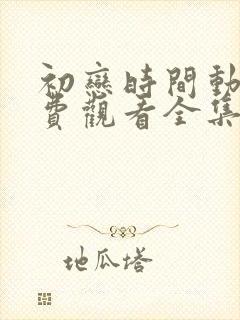 初戀時間動
費觀看全集
地瓜塔